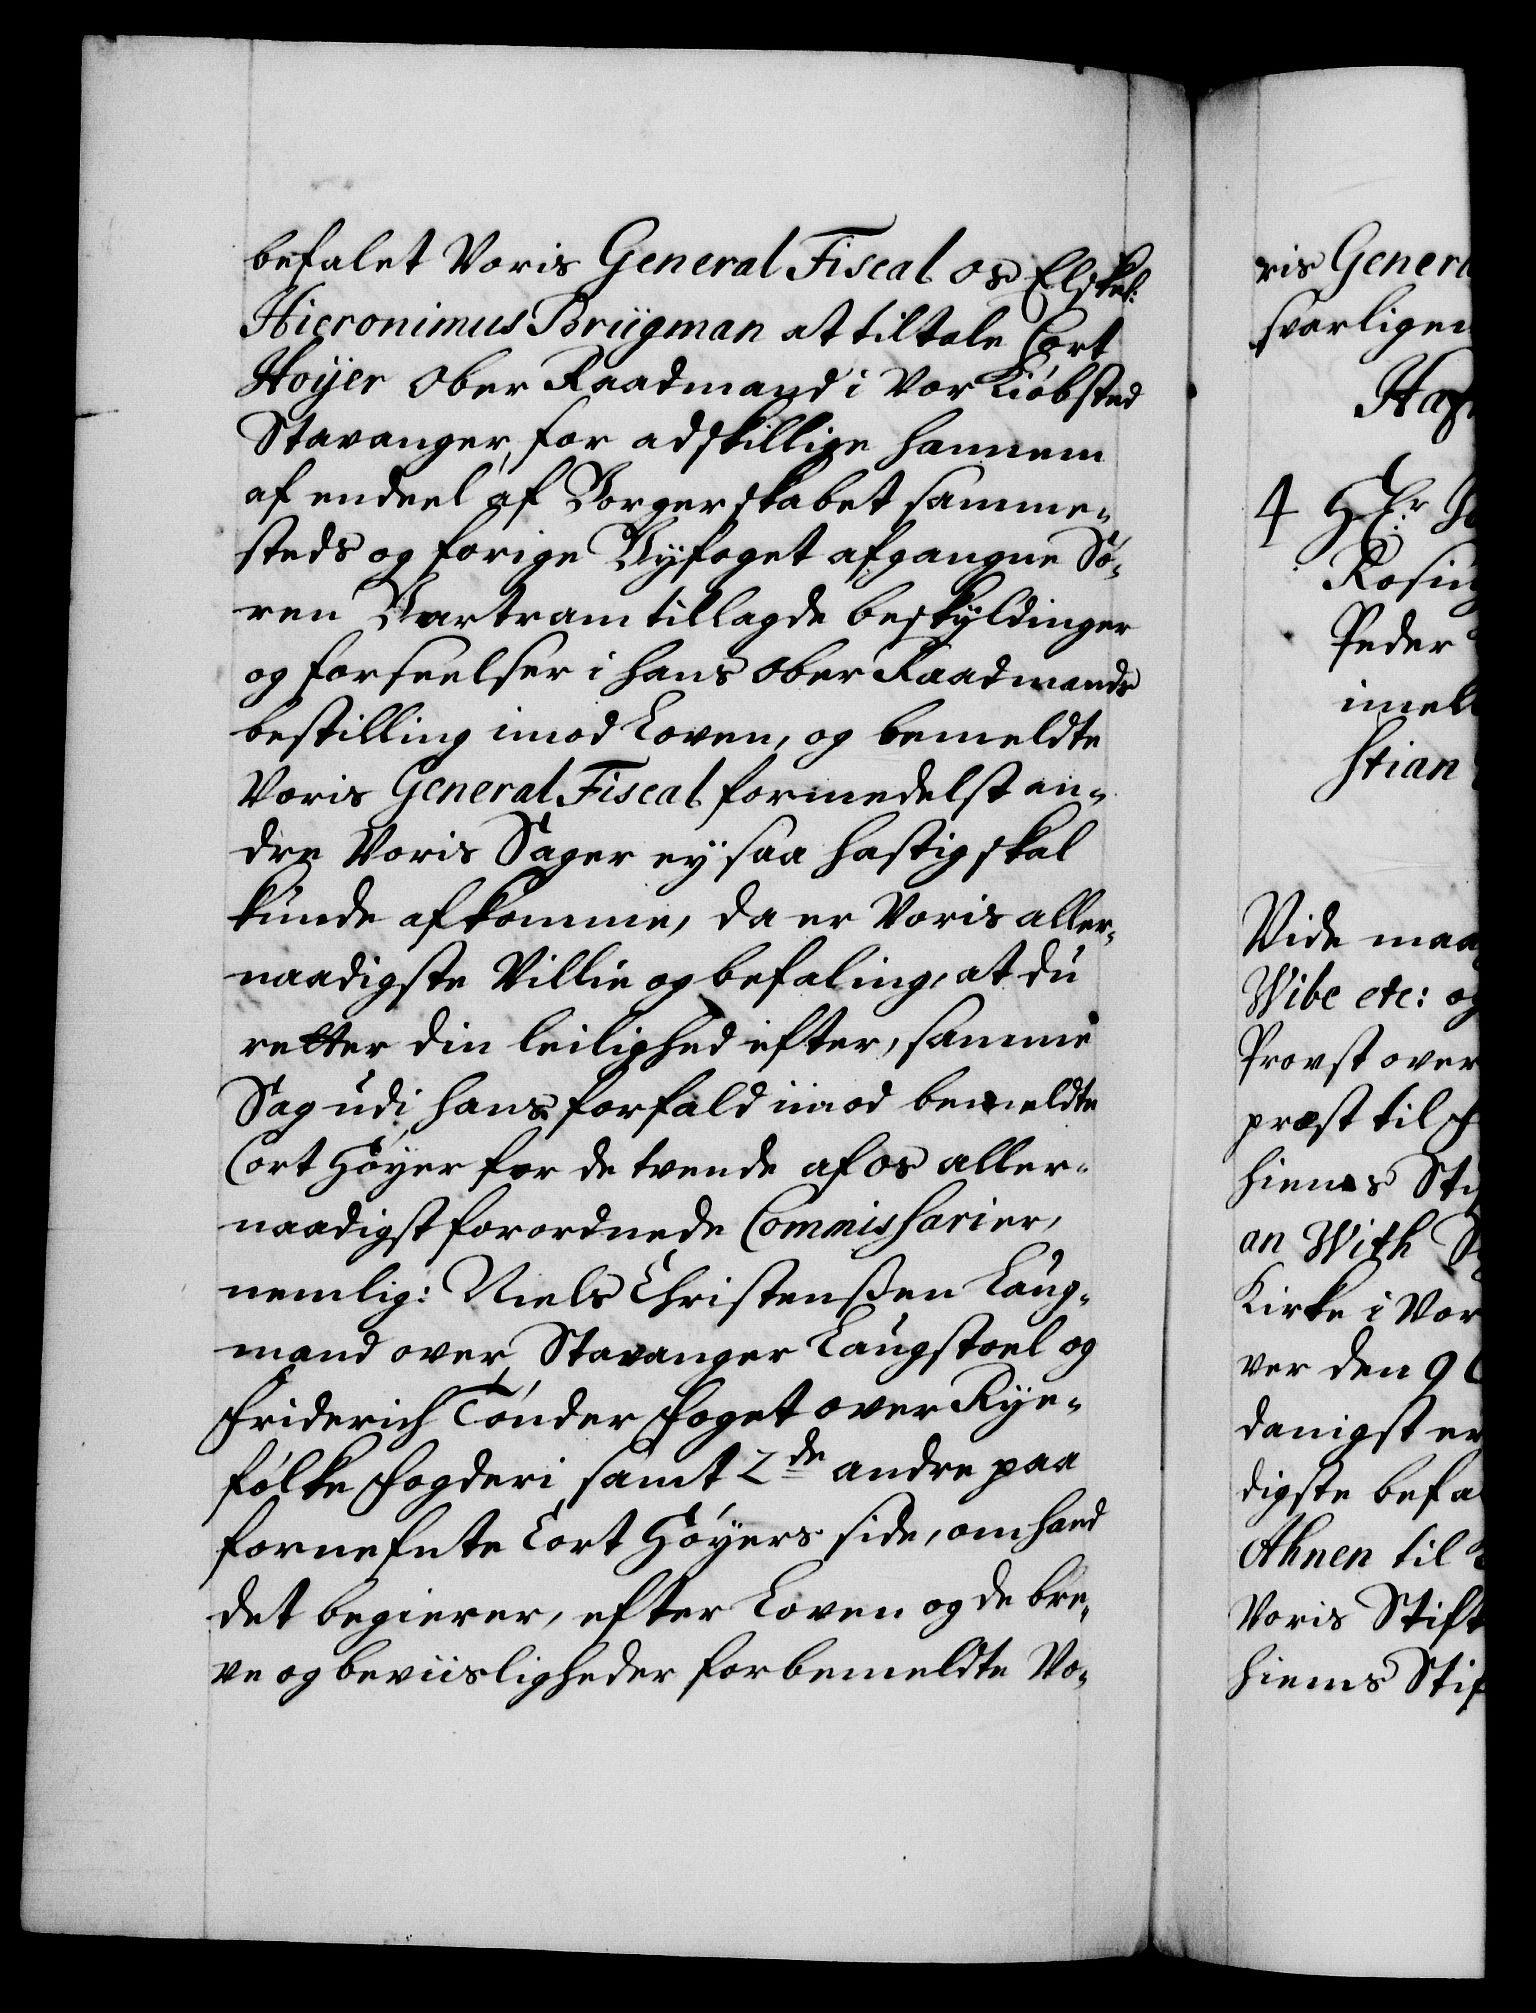 befalet Voris General Fiscal os Elskel:
Hieronimus Brügman at tiltale Cort
Hoÿer Ober Raadmand i Vor Kiöbsted
Stavanger, for adskillige hannem
af endeel af Borgerskabet samme-
steds og forige Bÿfoget afgangne Sö-
ren Bartram tillagde beskÿldinger
og forseelser i hans Ober Raadmands
bestilling imod Loven, og bemeldte
Voris General Fiscal formedelst an-
dre Voris Sager eÿ saa hastig skal
kunde afkomme, da er Voris aller-
naadigste Villie og befaling, at du
retter din leilighed efter, samme
Sag udi hans forfald imod bemeldte
Cort Höÿer for de tvende af os aller-
naadigst forordnede Commissarier,
nemlig: Niels Christenßen Laug-
mand over Stavanger Laugstoel og
Friderich Tönder Foget over Rÿe-
fölke Fogderi samt 2de andre paa
fornefnte Cort Höÿers side, om hand
det begierer, efter Loven og de bre-
ve og beviisligheder forbemeldte Vo-
ris
svarligen
4
Peder
stian
Vide maa
Wibe etc: og
Provst over
præst til
hiems
an With
Kirke i Vor
ver den 9
danigst er
digste
Ahnen til
Voris Stift
hiems